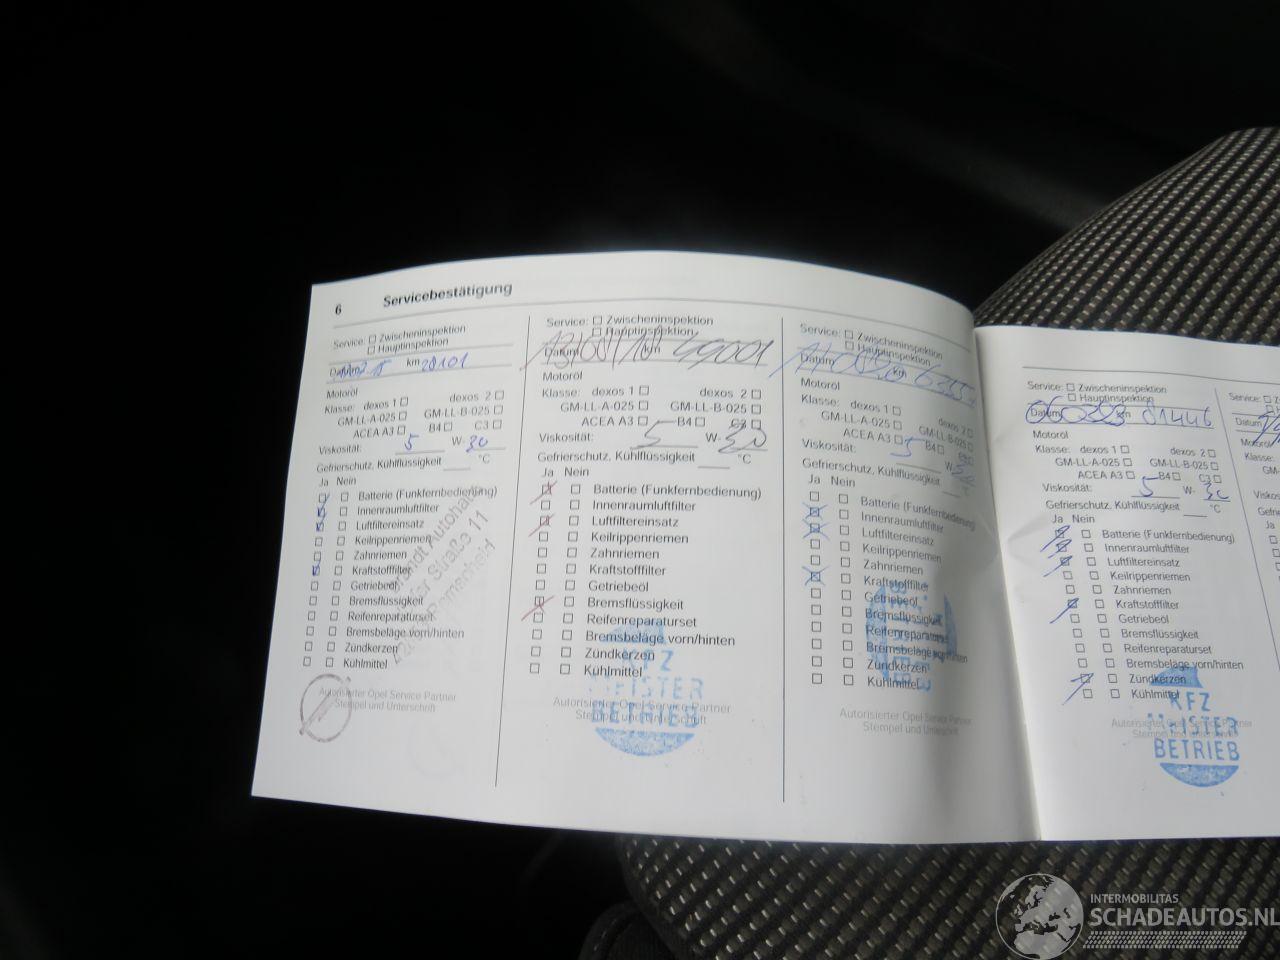 6 Servicebestätigung
Service: Zwischeninspektion
Hauptinspektion
Datum km 28101
Motoröl
Klasse: dexos 1 dexos 2
GM-LL-A-025 GM-LL-B-025
ACEA A3 B4 C3
Viskosität: 5 W- 30
Gefrierschutz, Kühlflüssigkeit °C
Ja Nein
Batterie (Funkfernbedienung)
Innenraumluftfilter
Luftfiltereinsatz
Keilrippenriemen
Zahnriemen
Kraftstofffilter
Getriebeöl
Bremsflüssigkeit
Reifenreparaturset
Bremsbeläge vorn/hinten
Zündkerzen
Kühlmittel
Autorisierter Opel Service Partner
Stempel und Unterschrift
Service: Zwischeninspektion
Hauptinspektion
Datum km 49001
Motoröl
Klasse: dexos 1 dexos 2
GM-LL-A-025 GM-LL-B-025
ACEA A3 B4 C3
Viskosität: 5 W- 30
Gefrierschutz, Kühlflüssigkeit °C
Ja Nein
Batterie (Funkfernbedienung)
Innenraumluftfilter
Luftfiltereinsatz
Keilrippenriemen
Zahnriemen
Kraftstofffilter
Getriebeöl
Bremsflüssigkeit
Reifenreparaturset
Bremsbeläge vorn/hinten
Zündkerzen
Kühlmittel
Autorisierter Opel Service Partner
Stempel und Unterschrift
KFZ
MEISTER
BETRIEB
Service: Zwischeninspektion
Hauptinspektion
Datum km
Motoröl
Klasse: dexos 1 dexos 2
GM-LL-A-025 GM-LL-B-025
ACEA A3 B4
Viskosität: 5 W-
Gefrierschutz, Kühlflüssigkeit
Ja Nein
Batterie (Funkfernbedienung)
Innenraumluftfilter
Luftfiltereinsatz
Keilrippenriemen
Zahnriemen
Kraftstofffilter
Getriebeöl
Bremsflüssigkeit
Reifenreparaturset
Bremsbeläge vorn/hinten
Zündkerzen
Kühlmittel
Autorisierter Opel Service Partner
Stempel und Unterschrift
Service: Zwischeninspektion
Hauptinspektion
Datum km 81446
Motoröl
Klasse: dexos 1 dexos 2
GM-LL-A-025 GM-LL-B-025
ACEA A3 B4 C3
Viskosität: 5 W- 30
Gefrierschutz, Kühlflüssigkeit °C
Ja Nein
Batterie (Funkfernbedienung)
Innenraumluftfilter
Luftfiltereinsatz
Keilrippenriemen
Zahnriemen
Kraftstofffilter
Getriebeöl
Bremsflüssigkeit
Reifenreparaturset
Bremsbeläge vorn/hinten
Zündkerzen
Kühlmittel
Autorisierter Opel Service Partner
KFZ
MEISTER
BETRIEB
Service:
Datum
Motoröl
Klasse:
INTERMOBILITAS
SCHADEAUTOS.NL